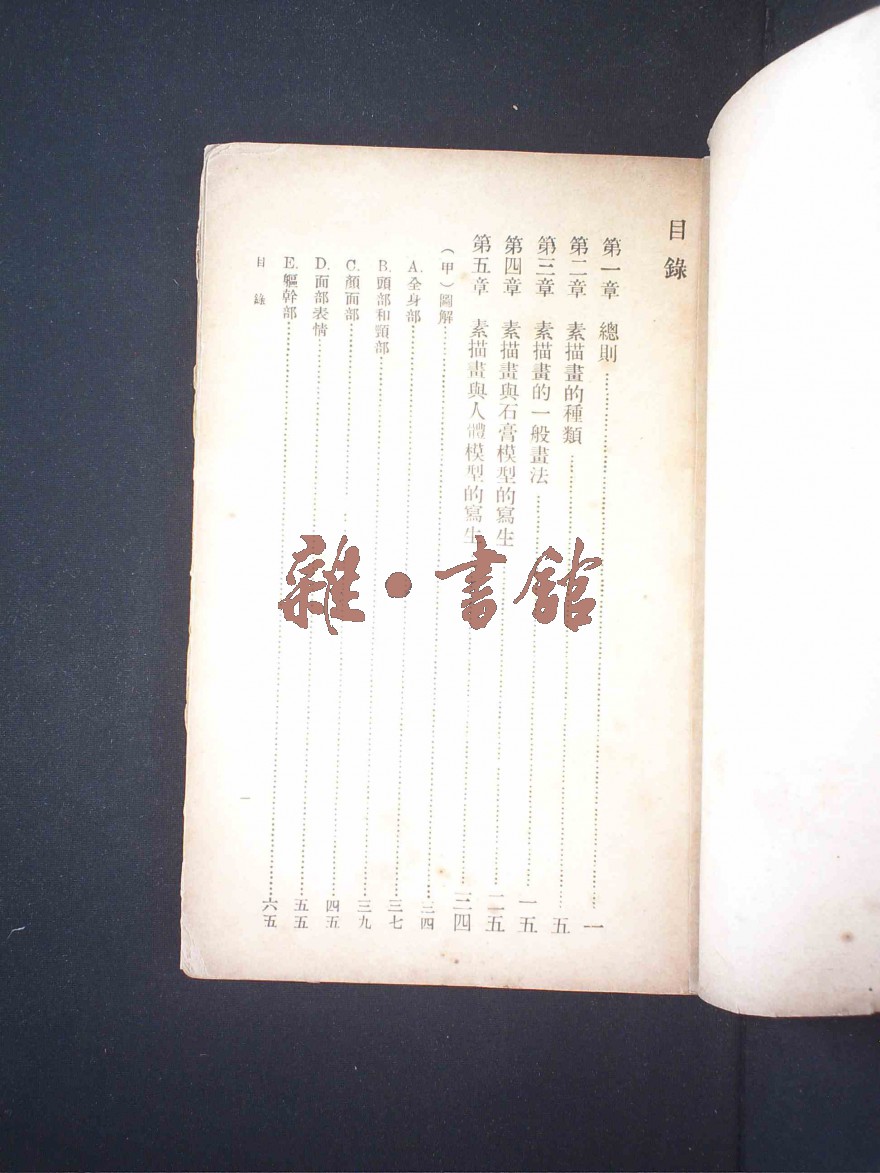 目錄
第一章 總則……一
第二章 素描畫的種類……五
第三章 素描畫的一般畫法……一五
第四章 素描畫與石膏模型的寫生……二五
第五章 素描畫與人體模型的寫生……三四
(甲)圖解……三四
A.全身部……三七
B.頭部和頸部……三九
C.顏面部……四五
D.面部表情……五五
E.軀幹部……六五
目錄
一
雜·書館